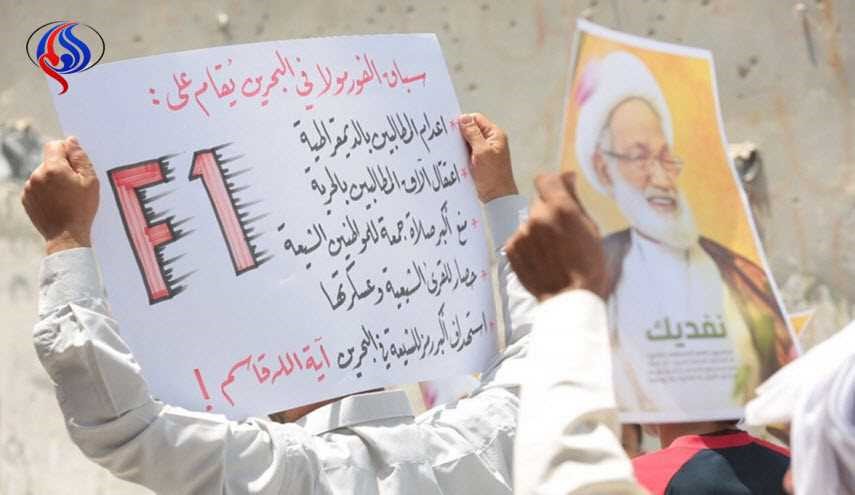 سباق الفورمولا في البحرين يُقام على :
* اعدام المطالبين بالديمقراطية
* اعتقال آلاف المطالبين بالحرية
* منع أكبر صلاة جمعة للمواطنين الشيعة
* حصار للقرى الشيعية وعسكرتها
* استهداف أكبر رمز للشيعة في البحرين آية الله قاسم !
F1
نفديك